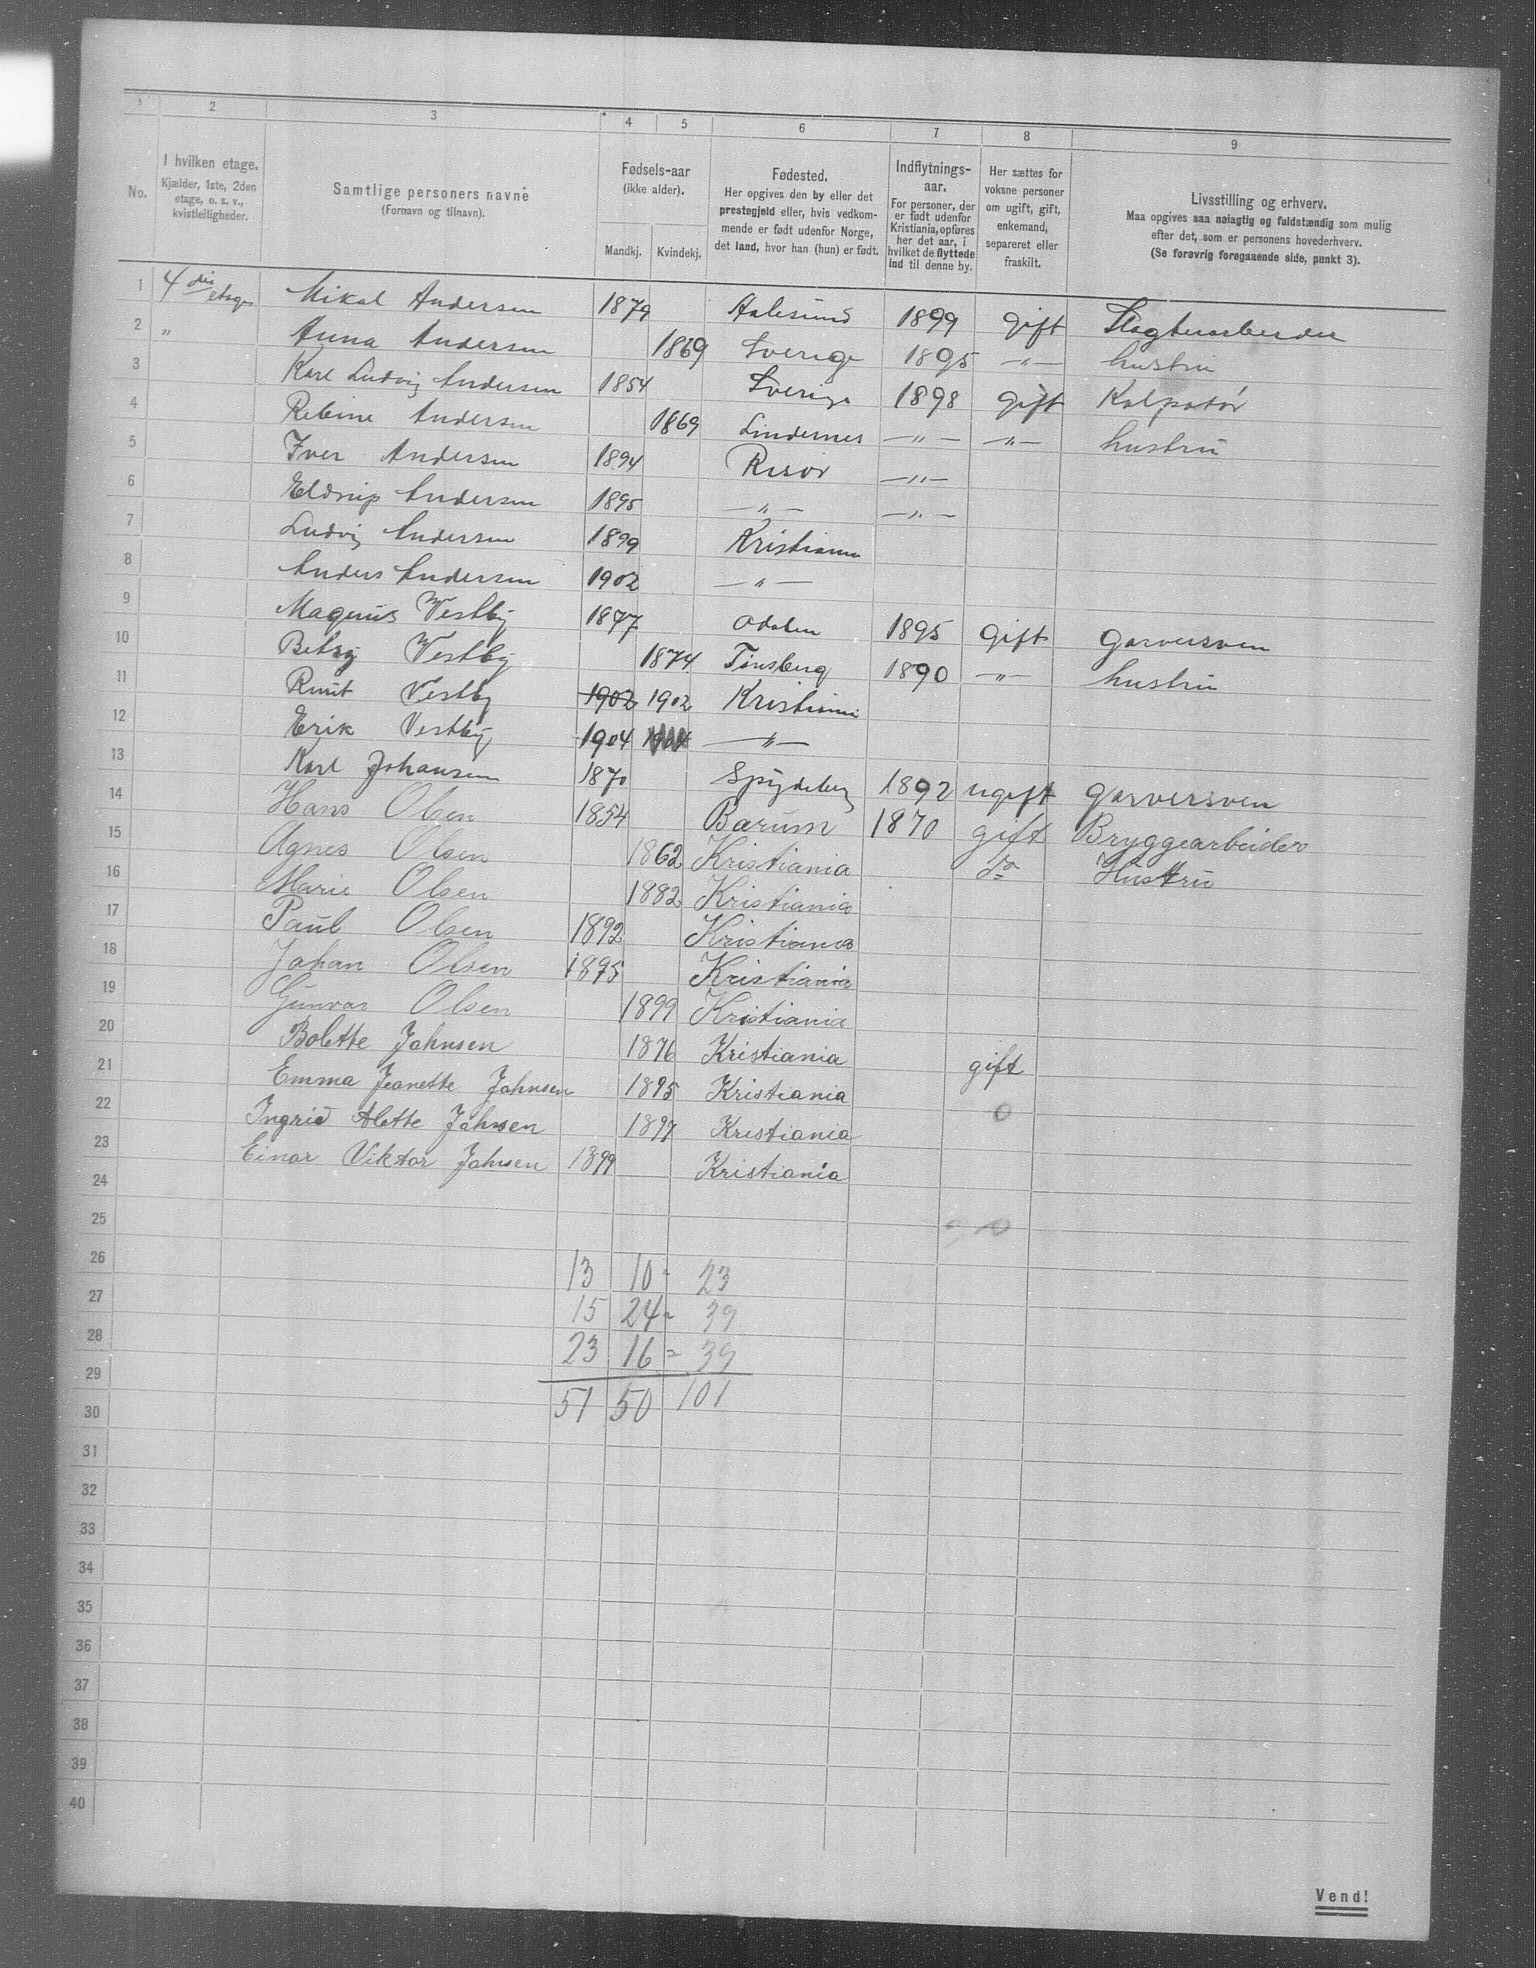 1 2 3 4 5 6 7 8 9
No.
I hvilken etage.
Kjælder, 1ste, 2den
etage, o. s. v.,
kvistleiligheder.
Samtlige personers navne
(Fornavn og tilnavn).
Fødsels-aar
(ikke alder).
Mandkj. Kvindekj.
Fødested.
Her opgives den by eller det
prestegjeld eller, hvis vedkom-
mende er født udenfor Norge,
det land, hvor han (hun) er født.
Indflytnings-
aar.
For personer, der
er født udenfor
Kristiania, opføres
her det aar, i
hvilket de flyttede
ind til denne by.
Her sættes for
voksne personer
om ugift, gift,
enkemand,
separeret eller
fraskilt.
Livsstilling og erhverv.
Maa opgives saa nøiagtig og fuldstændig som mulig
efter det, som er personens hovederhverv.
(Se forøvrig foregaaende side, punkt 3).
1 4 die etage Mikal Andersen 1879 Aalesund 1899 gift Slagteriarbeider
2 " Anna Andersen 1869 Sverige 1895 —"— hustru
3 Karl Ludvig Andersen 1854 Sverige 1898 gift Kolportør
4 Rebine Andersen 1869 Lindernes —"— —"— hustru
5 Iver Andersen 1894 Risør —"—
6 Eldrup Andersen 1895 —"— —"—
7 Ludvig Andersen 1899 Kristiania
8 Anders Andersen 1902 —"—
9 Magnus Vestby 1877 Odalen 1895 gift garversven
10 Betsy Vestby 1874 Tønsberg 1890 —"— hustru
11 Ruut Vestby 1902 1902 Kristiania
12 Erik Vestby 1904 —"—
13 Karl Johansen 1870 Spydeberg 1892 ugift garversven
14 Hans Olsen 1854 Bærum 1870 gift Bryggearbeider
15 Agnes Olsen 1862 Kristiania do Hustru
16 Marie Olsen 1882 Kristiania
17 Paul Olsen 1892 Kristiania
18 Johan Olsen 1895 Kristiania
19 Gunvor Olsen 1899 Kristiania
20 Bolette Johnsen 1876 Kristiania gift
21 Emma Jeanette Johnsen 1895 Kristiania
22 Ingrid Alette Johnsen 1897 Kristiania 0
23 Einar Viktor Johnsen 1899 Kristiania
24
25
26 13 10 = 23
27 15 24 = 39
28 23 16 = 39
29
30 51 50 101
31
32
33
34
35
36
37
38
39
40
Vend!